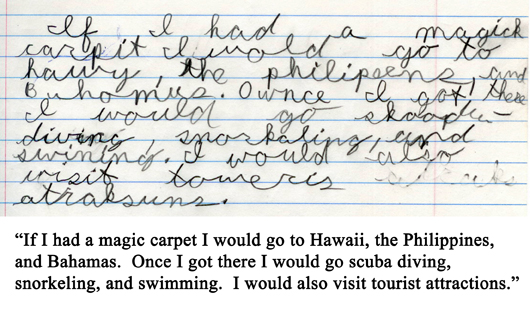 If I had a magick
carpit I wold go to
hawy, the philipeens, and
Buhomus. Ownce I got there
I would go skoopu-
diving, snorkaling, and
swining. I would also
visit toweris
atraksuns.
“If I had a magic carpet I would go to Hawaii, the Philippines,
and Bahamas.  Once I got there I would go scuba diving,
snorkeling, and swimming.  I would also visit tourist attractions.”